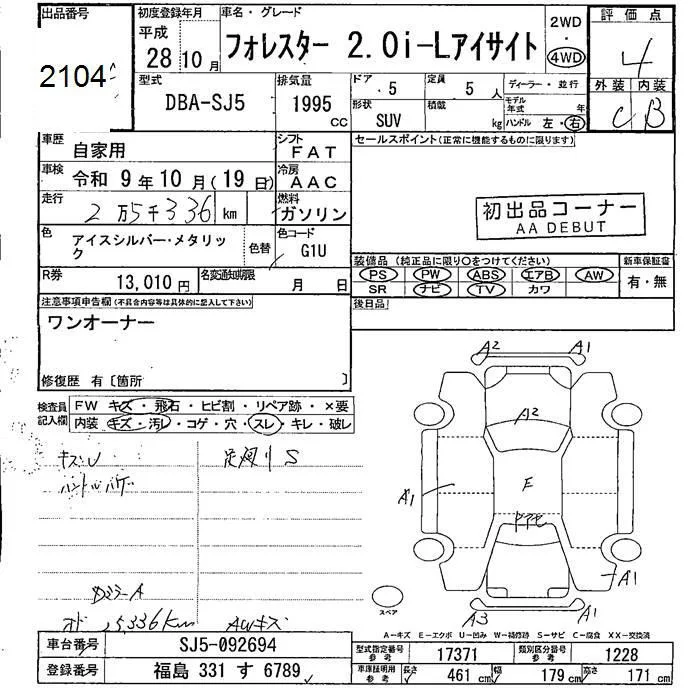 出品番号
2104
初度登録年月
平成
28年10月
車名・グレード
フォレスター 2.0i-Lアイサイト
2WD
・
4WD
評価点
4
型式
DBA-SJ5
排気量
1995
CC
ドア
5
定員
5人
形状
SUV
積載
kg
ディーラー・並行
モデル年式 年
ハンドル 左・右
外装 内装
C B
車歴
自家用
シフト
FAT
車検
令和 9年10月(19日)
冷房
AAC
走行
2万5千336km
燃料
ガソリン
色
アイスシルバー・メタリック
色替
色コード
G1U
R券
13,010円
名変通知期限
月 日
セールスポイント(正常に機能するものに限ります)
初出品コーナー
AA DEBUT
装備品(純正品に限り○をつけてください)
PS PW ABS エアB AW
SR ナビ TV カワ
新車保証書
有・無
後日品
注意事項申告欄(不具合内容等は具体的に記入して下さい)
ワンオーナー
修復歴 有〔箇所 〕
検査員記入欄
FW キズ・飛石・ヒビ割・リペア跡・×要
内装 キズ・汚レ・コゲ・穴・スレ・キレ・破レ
キズU
S
25336km
AWキズ
A2
A1
A2
E
A1
A1
A3
A1
スペア
A-キズ E-エクボ U-凹み W-補修跡 S-サビ C-腐食 XX-交換済
車台番号
SJ5-092694
登録番号
福島 331 す 6789
型式指定番号
参考
17371
類別区分番号
参考
1228
車体証明用
参考
長さ
461 cm
幅
179 cm
高さ
171 cm